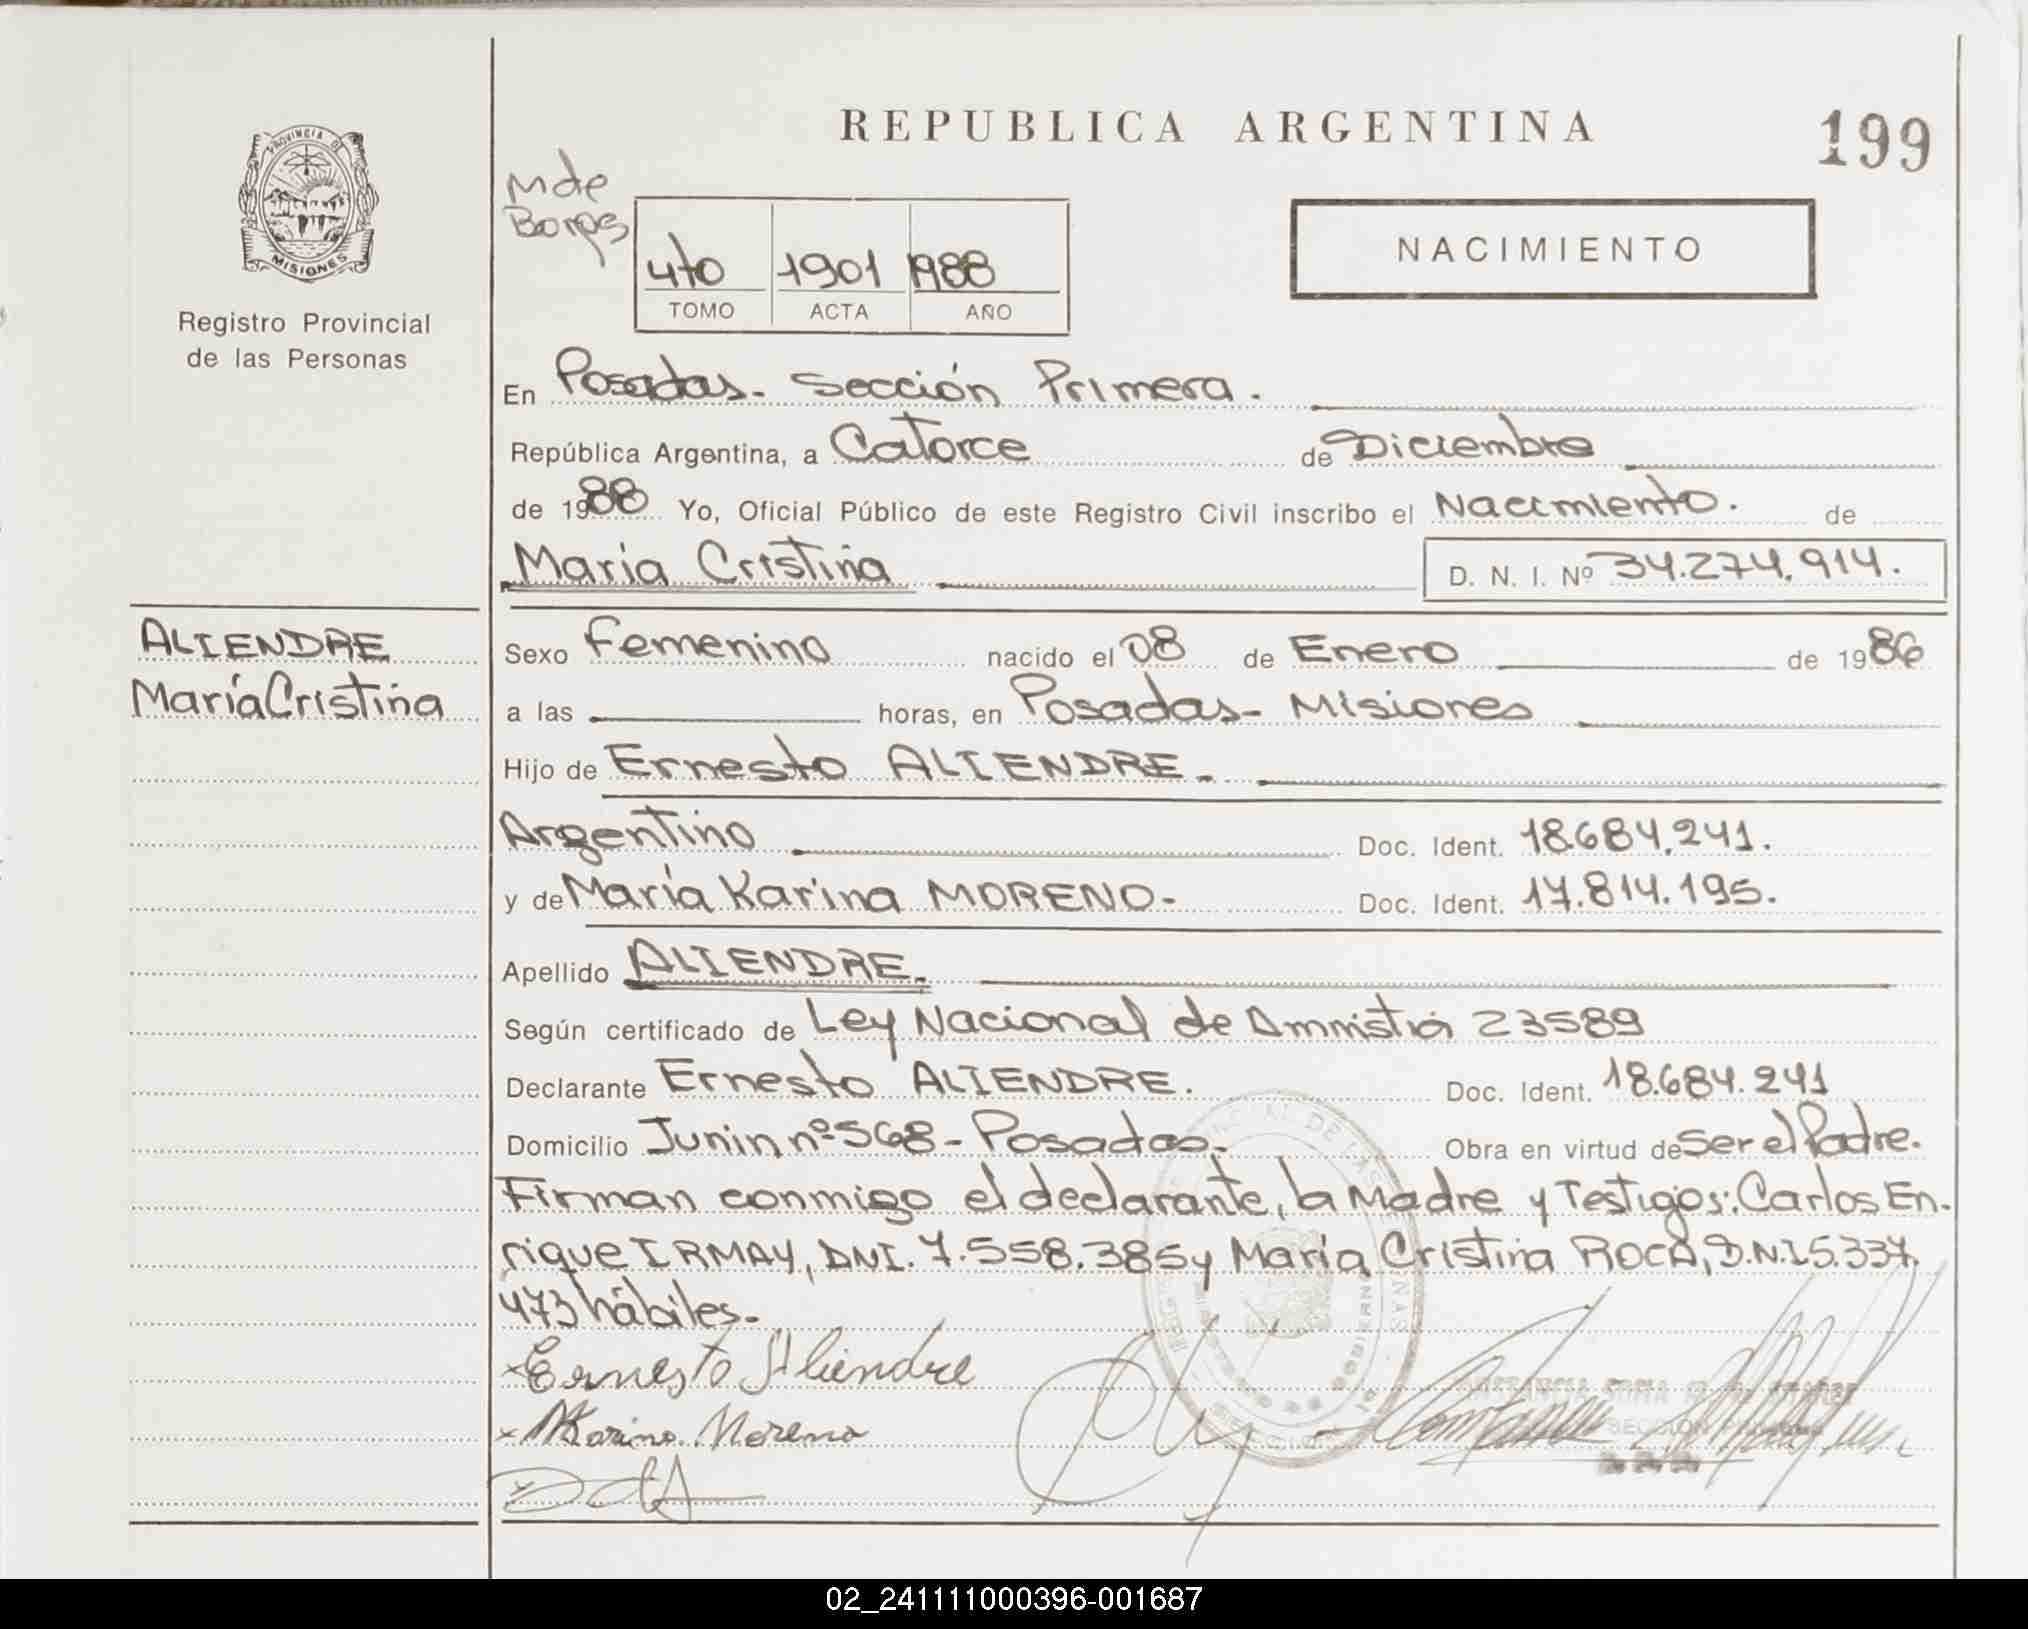 REPUBLICA ARGENTINA
199
PROVINCIA DE
MISIONES
Registro Provincial
de las Personas
M de
4to 1901 1988
TOMO ACTA AÑO
NACIMIENTO
En Posadas- Sección Primera.
República Argentina, a Catorce de Diciembre
de 1988 Yo, Oficial Público de este Registro Civil inscribo el Nacimiento. de
María Cristina D. N. I. Nº 34.274.914.
ALIENDRE
María Cristina
Sexo Femenino nacido el 08 de Enero de 1986
a las horas, en Posadas- Misiones
Hijo de Ernesto ALIENDRE.
Argentino Doc. Ident. 18.684.241.
y de María Karina MORENO- Doc. Ident. 17.814.195.
Apellido ALIENDRE.
Según certificado de Ley Nacional de Amnistia 23589
Declarante Ernesto ALIENDRE. Doc. Ident. 18.684.241
Domicilio Junin nº 568- Posadas. Obra en virtud de Ser el Padre.
Firman conmigo el declarante, la Madre y Testigos: Carlos En-
rique IRMAY, DNI. 7.558.385 y María Cristina ROCA, D.N.I 5.337.
473 hábiles.-
Ernesto Aliendre
Karina Moreno
02_241111000396-001687